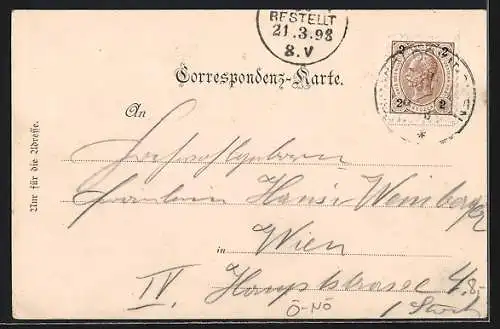 BESTELLT
21.3.98
8.V
2 2
2 2
Correspondenz-Karte.
An
Nur für die Adresse.
Hochwohlgeboren
Fräulein Hansi Weinberger
in Wien
IV. Hauptstrasse 48.
Ö-NÖ
1 Stock